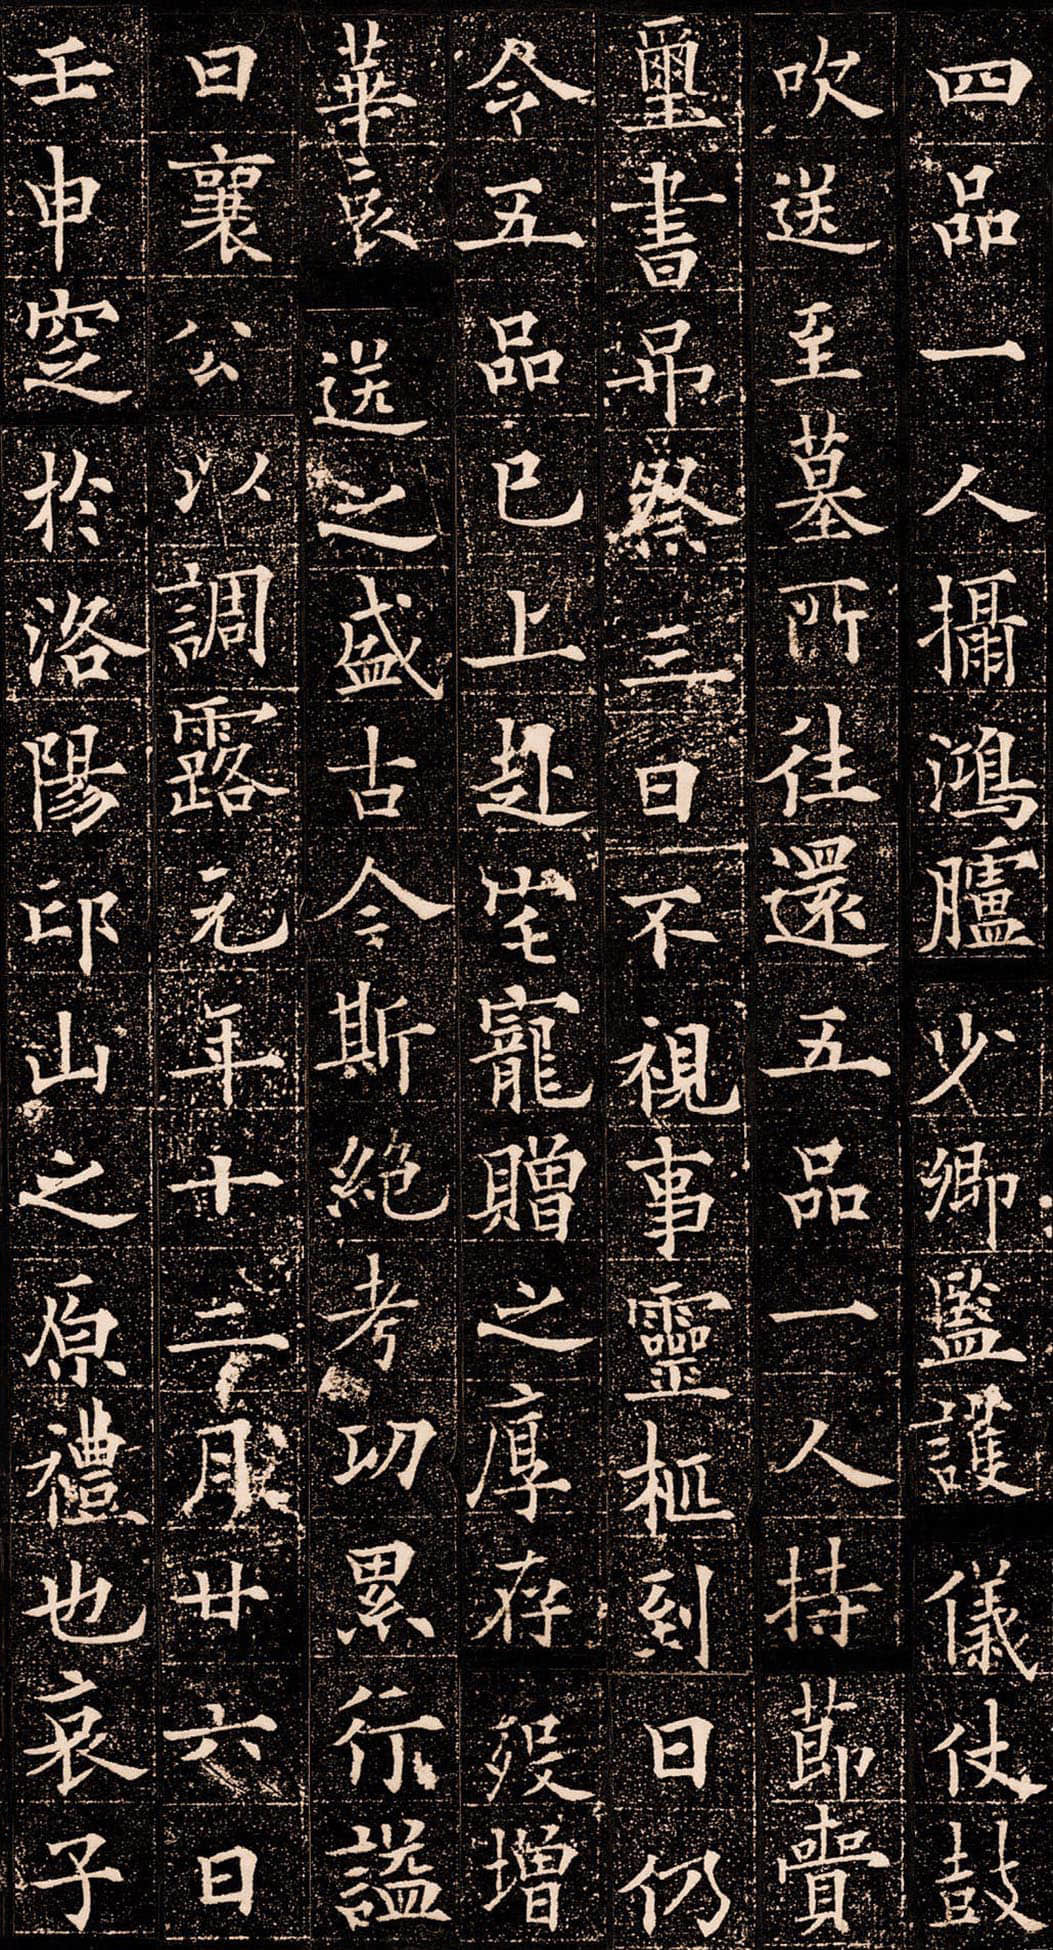 四品一人攝鴻臚少卿監護儀仗鼓
吹送至墓所往還五品一人持節賷
璽書弔祭三日不視事靈柩到日仍
令五品已上赴宅寵贈之厚存歿增
華哀送之盛古今斯絶考功累行謚
曰襄公以調露元年十二月廿六日
壬申窆於洛陽邙山之原禮也哀子